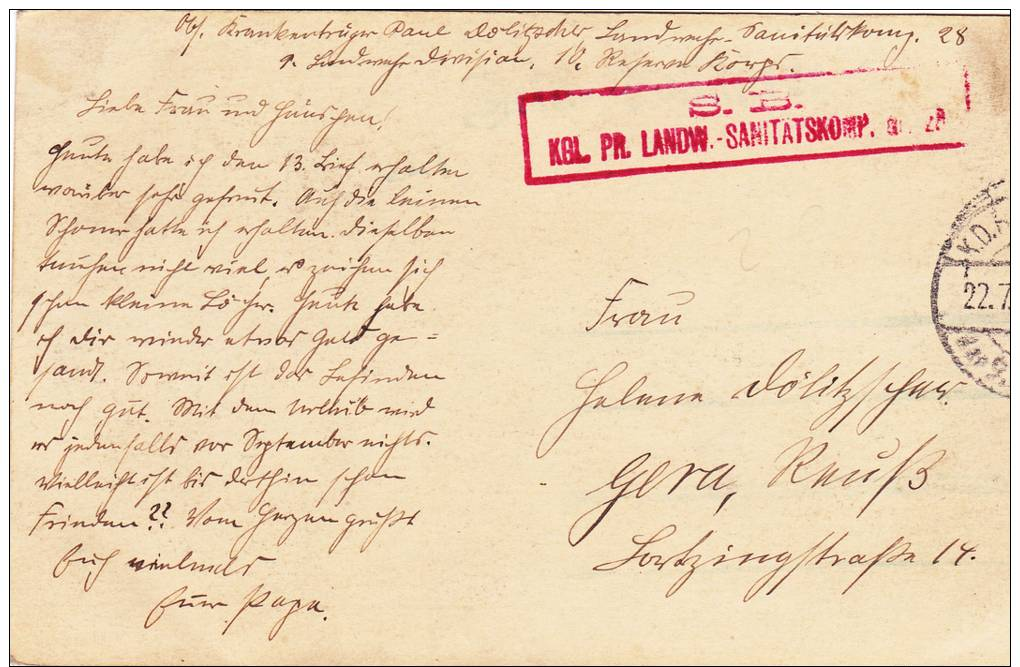 Abs. Krankenträger Paul Dölitzscher Landwehr-Sanitätskomp. 28
9. Landwehr Division, 10. Reserve Korps.
S. B.
KGL. PR. LANDW.-SANITÄTSKOMP.
Liebe Frau und Häuschen!
Heute habe ich den 13. Brief erhalten
worüber sehr gefreut. Auf die leinen
Schoner hatte ich erhalten. dieselben
taugen nicht viel, es zeigen sich
schon kleine Löcher. Heute habe
ich Dir wieder etwas Geld ge=
sandt. Soweit ist das Befinden
noch gut. Mit dem Urlaub wird
es jedenfalls vor September nichts.
Vielleicht ist bis dorthin schon
Frieden?? Vom Herzen grüßt
Euch vielmals
Euer Papa.
K.D.
22.7
Frau
Helene Dölitzscher
Gera, Reuß
Lortzingstraße 14.